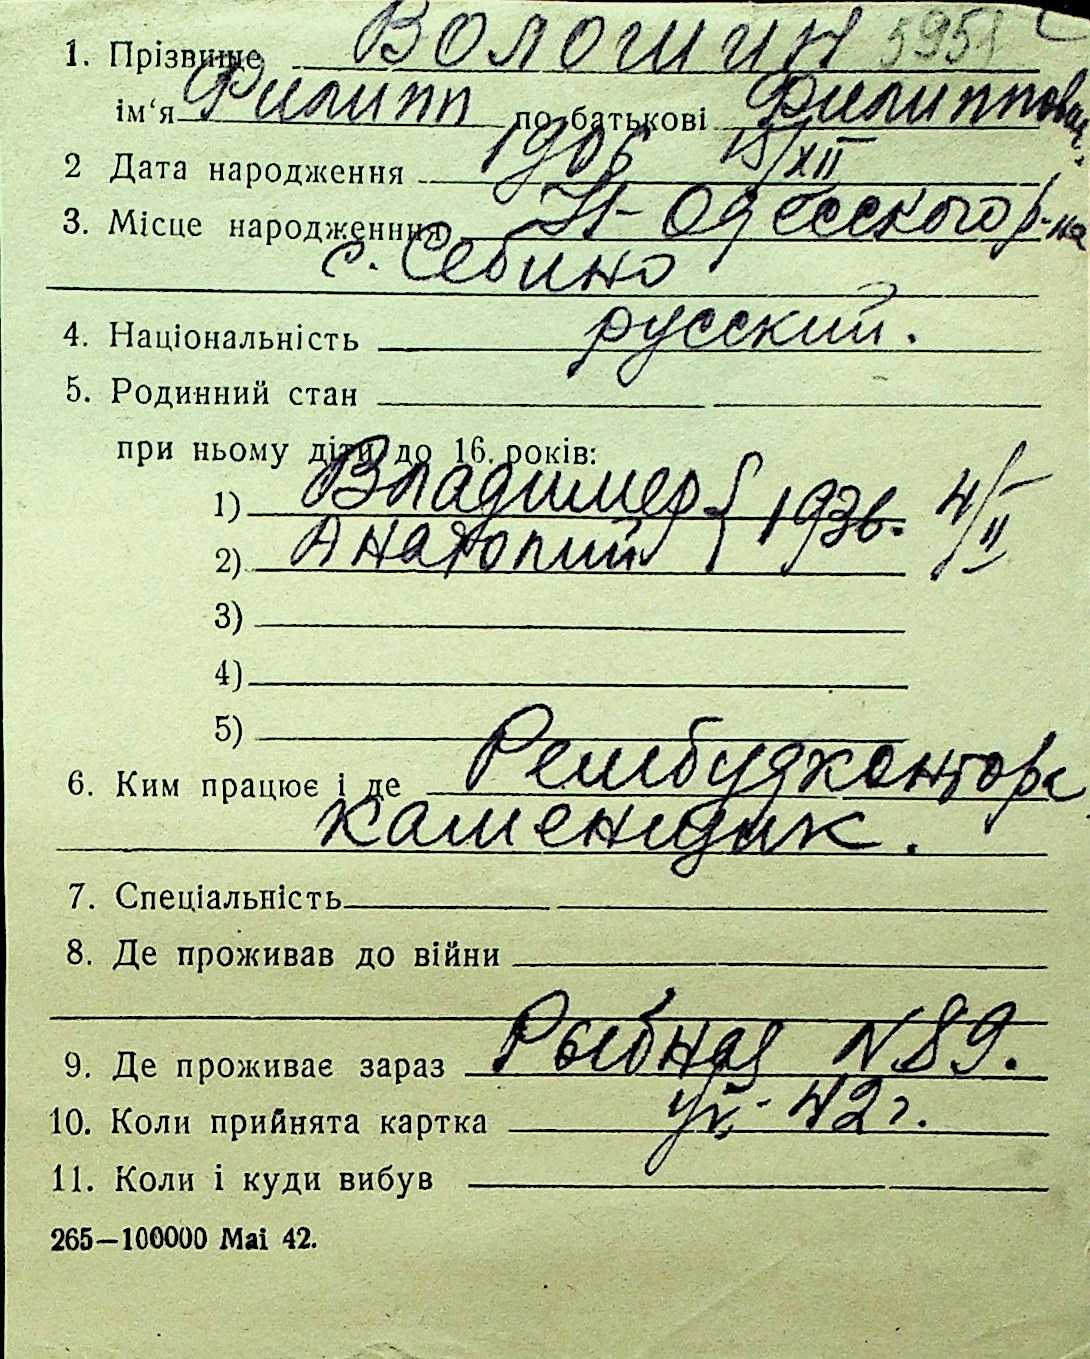 1. Прізвище Волошин 5951
ім‘я Филипп по батькові Филиппович
2 Дата народження 1906 15/XII
3. Місце народженння Н-Одесского р-на
с. Себино
4. Національність русский.
5. Родинний стан
при ньому діти до 16 років:
1) Владимер } 1936. 4/II
2) Анатолий
3)
4)
5)
6. Ким працює і де Рембудконтора
каменщик.
7. Спеціальність
8. Де проживав до війни
9. Де проживає зараз Рыбная N 89.
10. Коли прийнята картка 42 г.
11. Коли і куди вибув
265—100000 Mai 42.